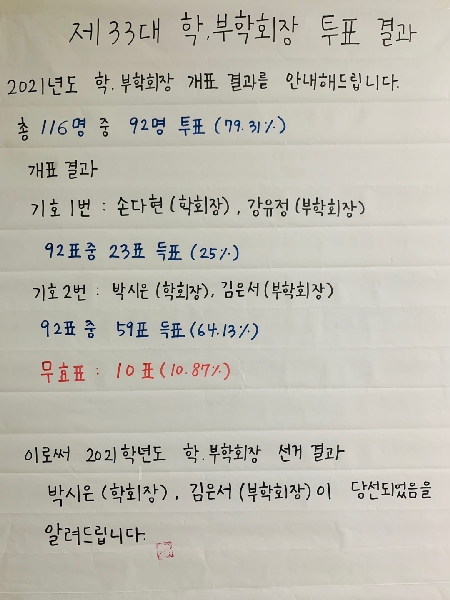 제 33대 학,부학회장 투표 결과
2021년도 학.부학회장 개표 결과를 안내해드립니다.
총 116명 중 92명 투표 (79.31%)
개표 결과
기호 1번 : 손다현 (학회장), 강유정 (부학회장)
92표 중 23표 득표 (25%)
기호 2번 : 박시은 (학회장), 김은서 (부학회장)
92표 중 59표 득표 (64.13%)
무효표 : 10표 (10.87%)
이로써 2021학년도 학.부학회장 선거 결과
박시은 (학회장), 김은서 (부학회장) 이 당선되었음을
알려드립니다.